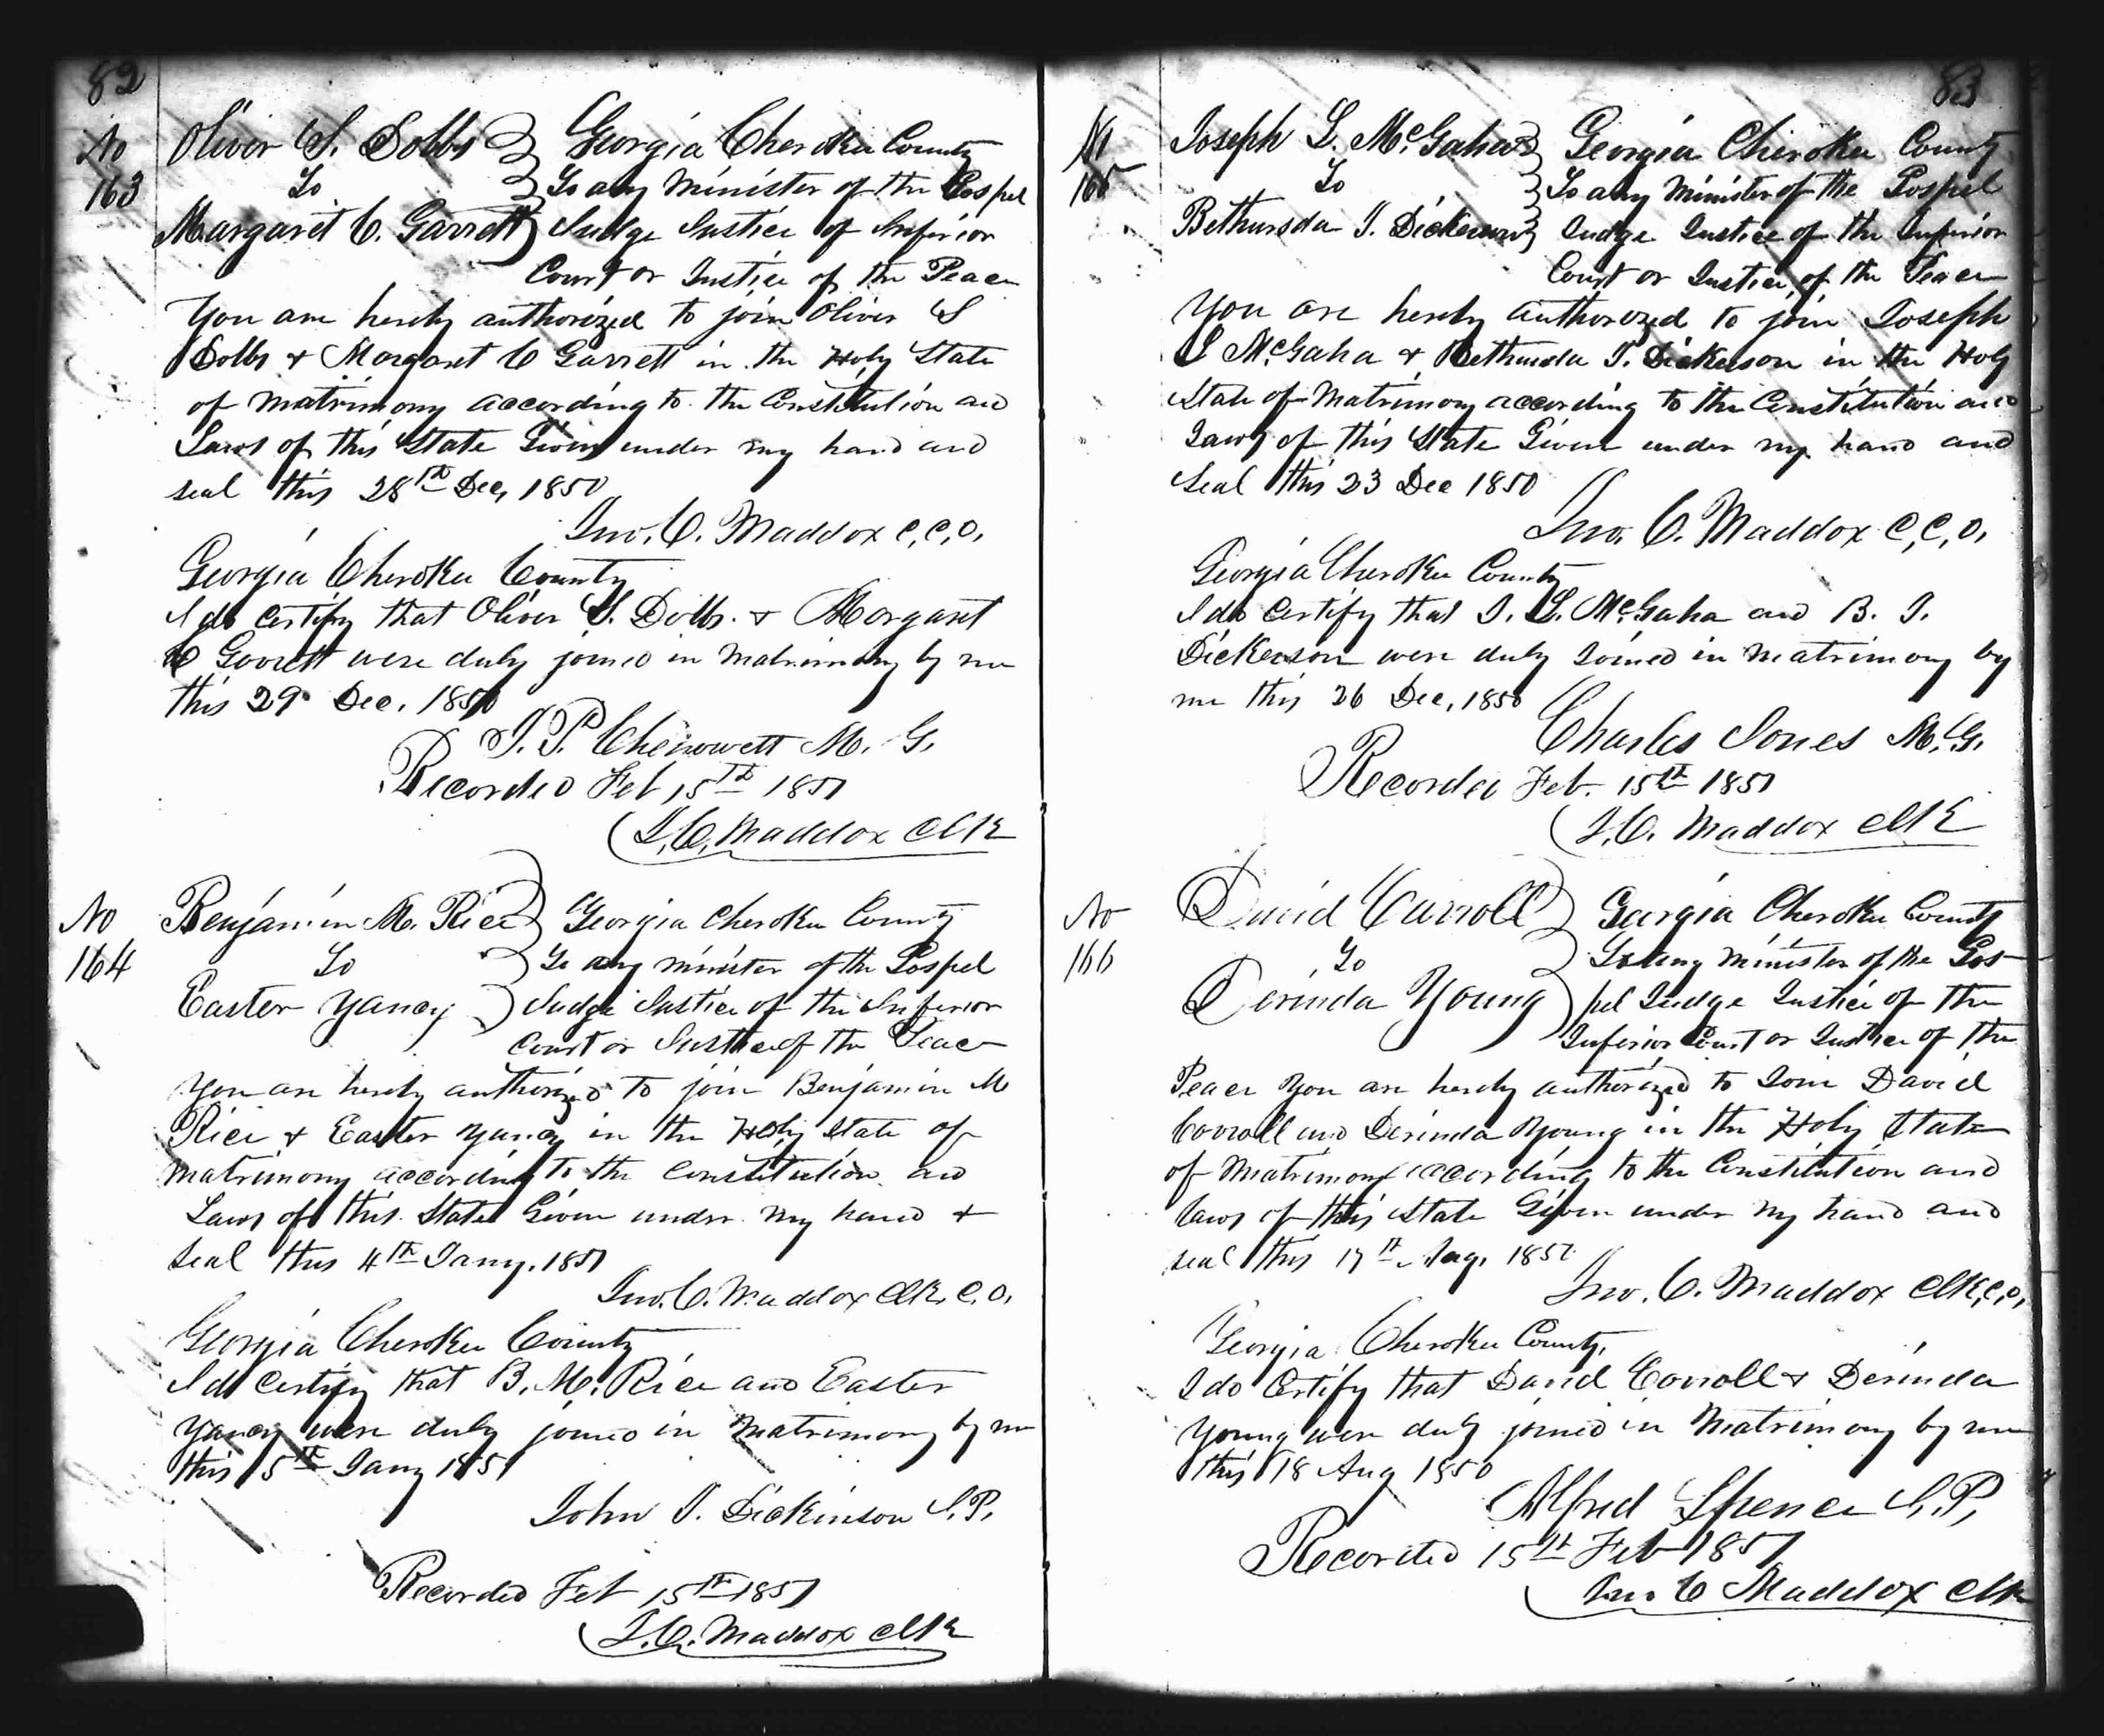 82
No 163
Oliver S. Dobbs Georgia Cherokee County
To To any Minister of the Gospel
Margaret C. Garrett Judge Justice of Inferior
Court or Justice of the Peace
You are hereby authorized to join Oliver S
Dobbs & Margaret C Garrett in the Holy State
of matrimony according to the Constitution and
Laws of this State Given under my hand and
seal this 28th Dec, 1850
Jno. C. Maddox C.C.O.
Georgia Cherokee County
I do certify that Oliver S. Dobbs. & Margaret
C Garrett were duly joined in Matrimony by me
this 29 Dec. 1850
M. G.
Recorded Feb 15th 1851
J. C. Maddox Clk
No 164
Benjamin M. Rice Georgia Cherokee County
To To any minister of the Gospel
Easter Yancy Judge Justice of the Inferior
Court or Justice of the Peace
You are hereby authorized to join Benjamin M
Rice & Easter Yancy in the Holy State of
matrimony according to the Constitution and
Laws of this State Given under my hand &
seal this 4th Jany. 1851
Jno. C. Maddox Clk. C.O.
Georgia Cherokee County
I do certify that B. M. Rice and Easter
Yancy were duly joined in matrimony by me
this 5th Jany 1851
John J. Dickinson J.P.
Recorded Feb 15th 1851
J. C. Maddox Clk
83
No 165
Joseph L. McGaha Georgia Cherokee County
To To any Minister of the Gospel
Bethursda J. Dickerson Judge Justice of the Inferior
Court or Justice of the Peace
You are hereby authorized to join Joseph
L McGaha & Bethursda J. Dickerson in the Holy
State of Matrimony according to the Constitution and
Laws of this State Given under my hand and
Seal this 23 Dec 1850
Jno. C. Maddox C.C.O.
Georgia Cherokee County
I do certify that J. L. McGaha and B. J.
Dickerson were duly Joined in matrimony by
me this 26 Dec, 1850
Charles Jones M.G.
Recorded Feb. 15th 1851
J. C. Maddox Clk
No 166
David Carroll Georgia Cherokee County
To To any minister of the Gos-
Derinda Young pel Judge Justice of the
Inferior Court or Justice of the
Peace You are hereby authorized to Join David
Carroll and Derinda Young in the Holy State
of Matrimony according to the Constitution and
laws of this State Given under my hand and
seal this 17th Aug. 1850
Jno. C. Maddox Clk, C.O.
Georgia Cherokee County,
I do Certify that David Carroll & Derinda
Young were duly joined in Matrimony by me
this 18 Aug 1850
Alfred Spence J.P.
Recorded 15th Feb 1851
Jno C Maddox Clk